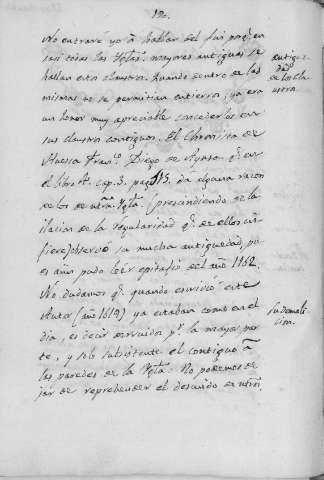 120.
No entraré yo á hablar del fin porq.e en
casi todas las Ygl.as mayores antiguas se
hallan estos claustros. Quando dentro de las
mismas no se permitian entierros, ya era
un honor muy apreciable concederlos en
sus claustros contiguos. El Chronista de
Huesca Fran.co Diego de Aynsa q.e en
el libro 4. cap. 3. pag. 515. dá alguna razon
de los de n͞ra Ygl.a (prescindiendo de la
ilacion de la regularidad q.e de ellos in
fiere) observó su mucha antiguedad, pu
es aun pudo leer epitafio del año 1162.
No dudamos q.e quando escrivió este
Autor (año 1619) ya estaban como en el
dia, es decir arruinados p.r la mayor par
te, y solo subsistente el contiguo á
las paredes de la Ygl.a. No podemos de
jar de reprehender el descuido de n͞ros
antigue
dad
de los Cla
ustros.
su demoli
cion.